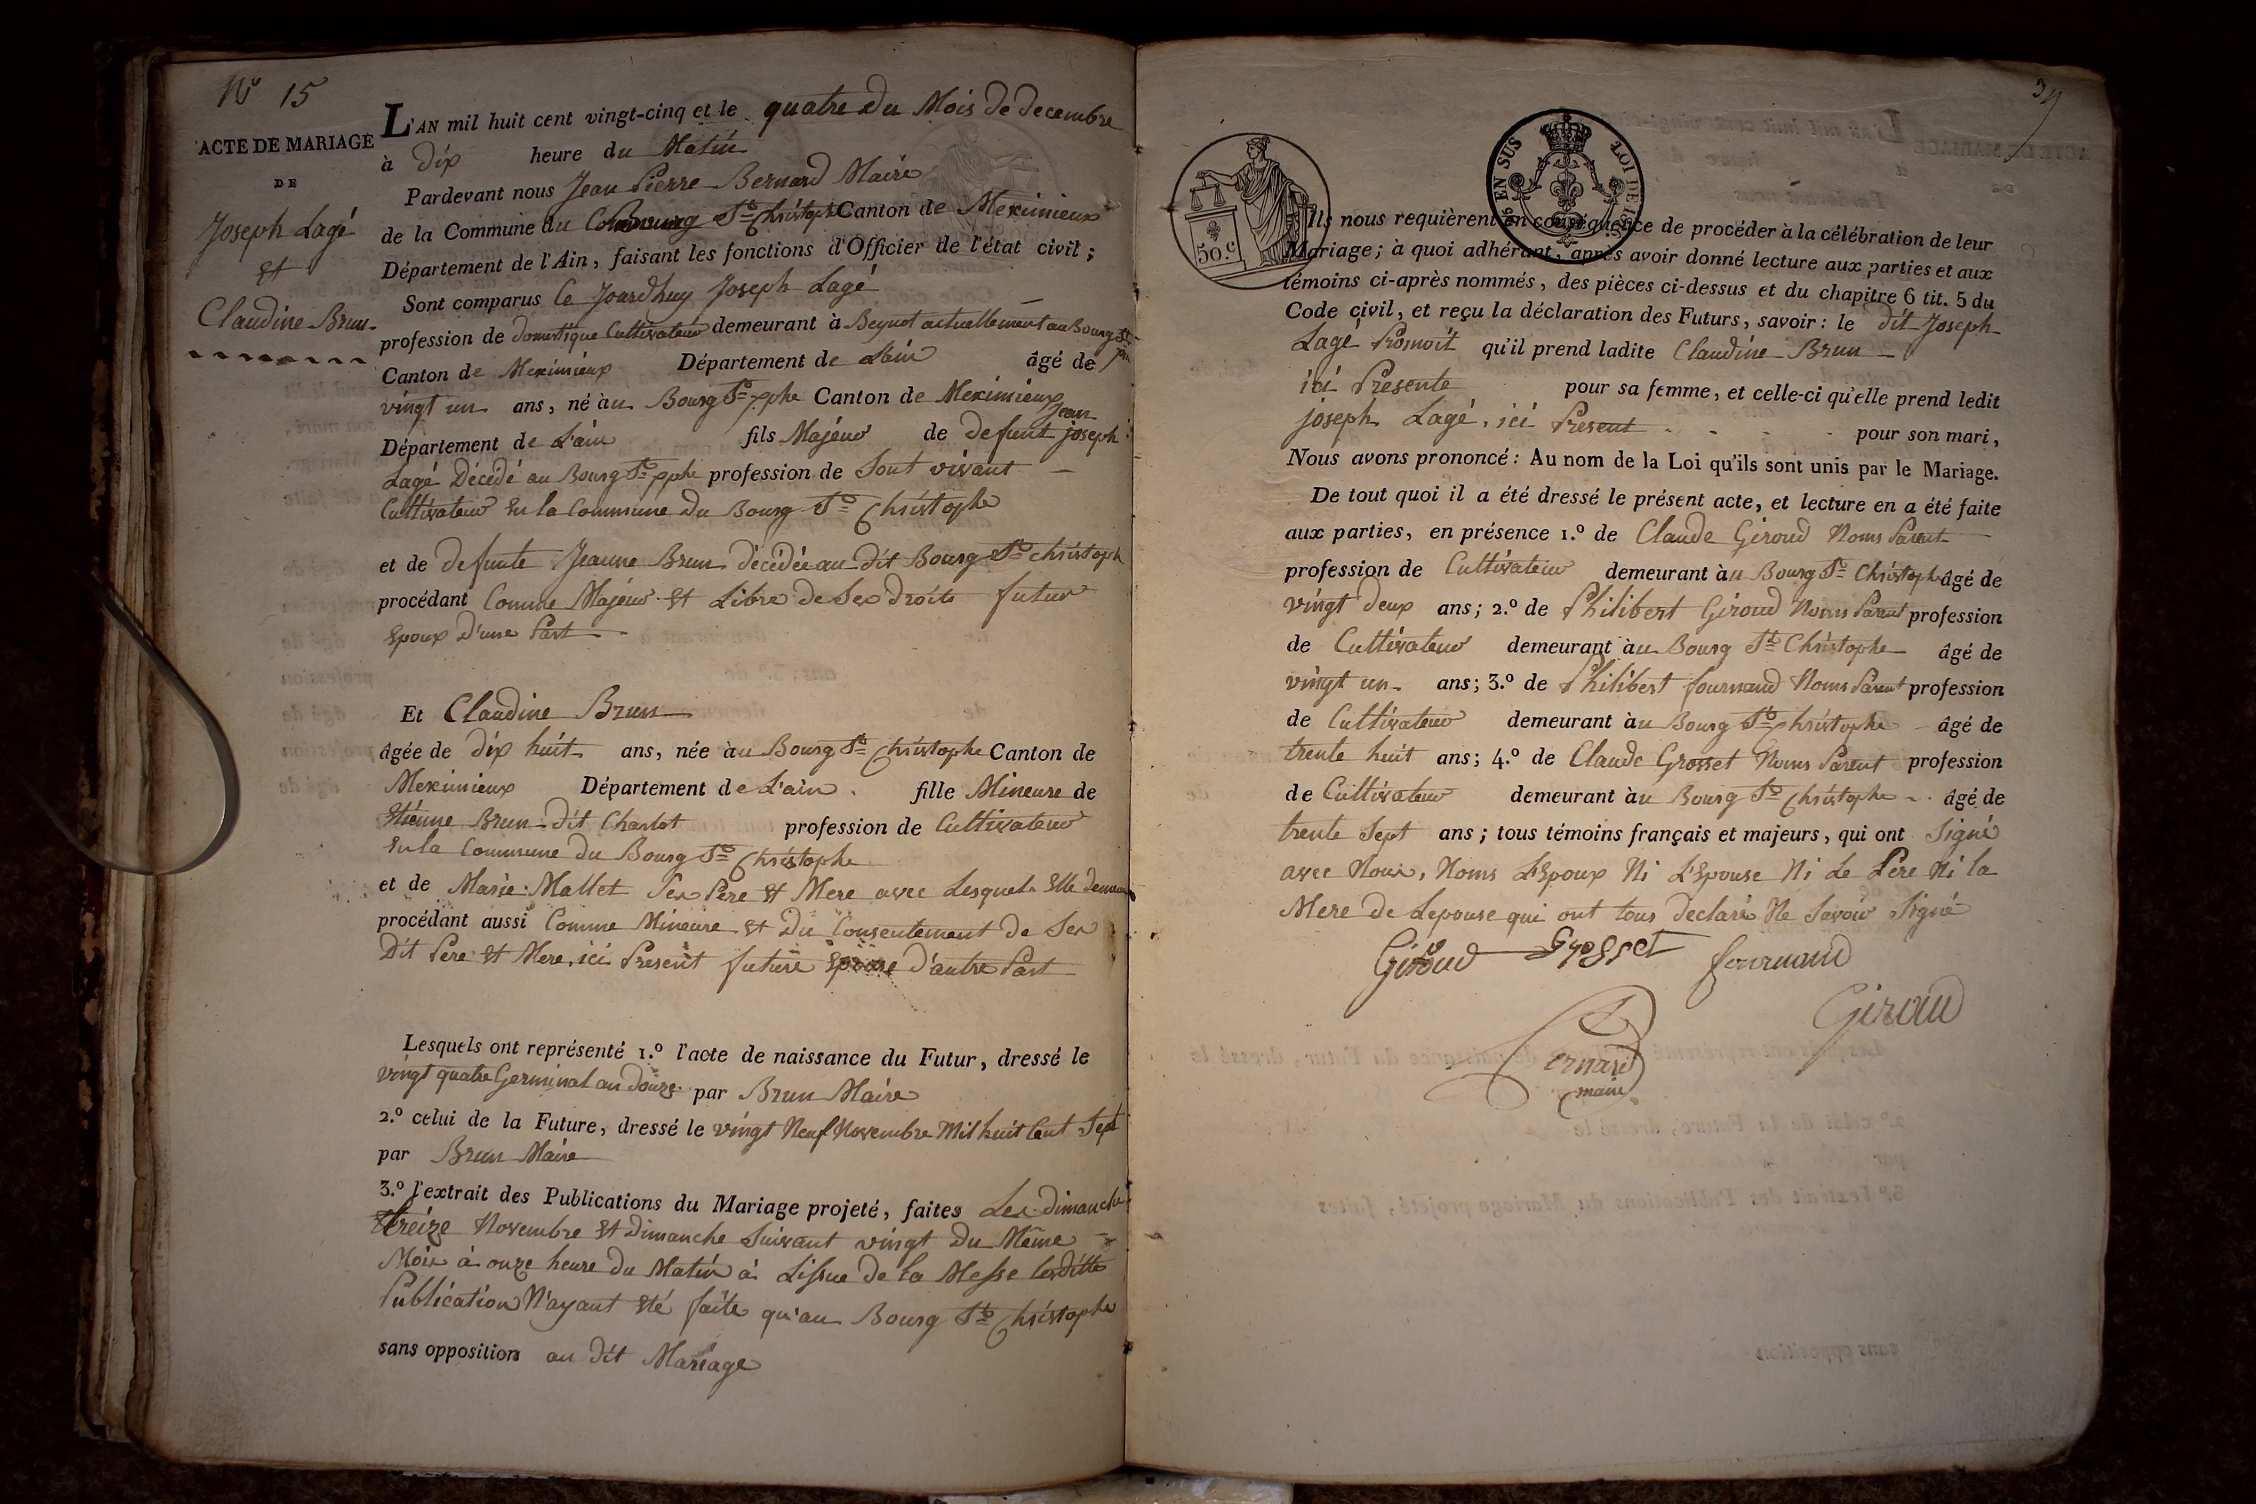 No 15
ACTE DE MARIAGE
DE
Joseph Lagé
Et
Claudine Brun
L'AN mil huit cent vingt-cinq et le quatre du Mois de decembre
à dix heure du Matin
Pardevant nous Jean Pierre Bernard Maire
de la Commune du Bourg St Christophe Canton de Meximieux
Département de l'Ain, faisant les fonctions d'Officier de l'état civil;
Sont comparus Ce Jourdhuy Joseph Lagé
profession de domestique Cultivateur demeurant à Beynot actuellement au Bourg St
Canton de Meximieux Département de L'ain âgé de
vingt un ans, né au Bourg St xphe Canton de Meximieux
Jean
Département de L'ain fils Majeur de defunt joseph
Lagé Décédé au Bourg St xphe profession de Sont vivant
Cultivateur En la Commune du Bourg St Christophe
et de defunte Jeanne Brun décédée au dit Bourg St christoph
procédant Comme Majeur Et Libre de Ses droits futur
Epoux D'une Part
Et Claudine Brun
âgée de dix huit ans, née au Bourg St Christophe Canton de
Meximieux Département de L'ain fille Mineure de
Etienne Brun dit Charlot profession de Cultivateur
En la Commune du Bourg St Christophe
et de Marie Mallet Ses Pere Et Mere avec Lesquels Elle demeure
procédant aussi Comme Mineure Et Du Consentement de Ses
Dit Pere Et Mere, ici Present future Epouse d'autre Part
Lesquels ont représenté 1.º l'acte de naissance du Futur, dressé le
vingt quatre Germinal an douze par Brun Maire
2.º celui de la Future, dressé le vingt Neuf Novembre Mil huit Cent Sept
par Brun Maire
3.º l'extrait des Publications du Mariage projeté, faites Les dimanche
treize Novembre Et dimanche Suivant vingt du Même
Mois à onze heure du Matin à Lissue de la Messe lesditte
Publication N'ayant Eté faite qu'au Bourg St Christophe
sans opposition au dit Mariage
50.c
EN SUS
LOI DE
Ils nous requièrent en conséquence de procéder à la célébration de leur
Mariage; à quoi adhérant, après avoir donné lecture aux parties et aux
témoins ci-après nommés, des pièces ci-dessus et du chapitre 6 tit. 5 du
Code civil, et reçu la déclaration des Futurs, savoir: le dit Joseph
Lagé Promoit qu'il prend ladite Claudine Brun
ici Presente pour sa femme, et celle-ci qu'elle prend ledit
joseph Lagé, ici Present pour son mari,
Nous avons prononcé: Au nom de la Loi qu'ils sont unis par le Mariage.
De tout quoi il a été dressé le présent acte, et lecture en a été faite
aux parties, en présence 1.º de Claude Giroud Noms Parent
profession de Cultivateur demeurant au Bourg St Christoph âgé de
vingt deux ans; 2.º de Philibert Giroud Noms Parent profession
de Cultivateur demeurant au Bourg St Christophe âgé de
vingt un ans; 3.º de Philibert fournand Noms Parent profession
de Cultivateur demeurant au Bourg St Christophe âgé de
trente huit ans; 4.º de Claude Grosset Noms Parent profession
de Cultivateur demeurant au Bourg St Christophe âgé de
trente Sept ans; tous témoins français et majeurs, qui ont Signé
avec Nous, Noms L'Epoux Ni L'Epouse Ni Le Pere Ni la
Mere de Lepouse qui ont tous declaré Ne Savoir Signé
Giroud Grosset fournand
Giroud
Bernard
maire